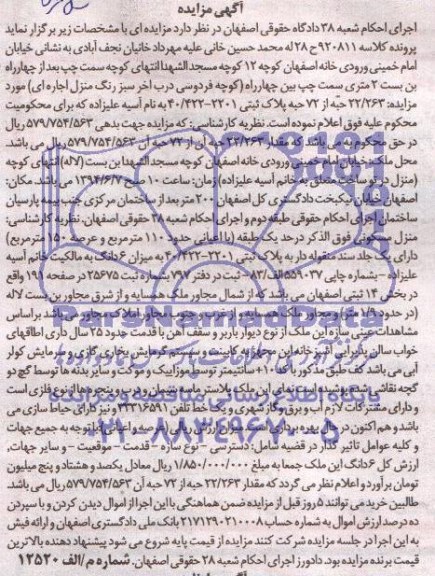 آگهی مزایده
اجرای احکام شعبه ۳۸ دادگاه حقوقی اصفهان در نظر دارد مزایده ای با مشخصات زیر برگزار نماید
پرونده کلاسه ۹۲۰۸۱۱ ج ۲۸ له محمد حسین خانی علیه مهرداد خانیان نجف آبادی به نشانی خیابان
امام خمینی ورودی خانه اصفهان کوچه ۱۲ کوچه مسجد الشهدا انتهای کوچه سمت چپ بعد از چهارراه
بن بست ۲ متری سمت چپ بین چهارراه (کوچه فردوسی درب آخر سبز رنگ منزل اجاره ای) مورد
مزایده: ۲۲/۲۶۳ حبه از ۷۲ حبه پلاک ثبتی ۲۲۰۱-۴۰/۴۲۲ به نام آسیه علیزاده که برای محکومیت
محکوم علیه فوق اعلام نموده است. نظریه کارشناسی: که مزایده جهت بدهی ۵۷۹/۷۵۴/۵۶۳ ریال
در حق محکوم به می باشد که مقدار ۲۲/۲۶۳ حبه آن از ۷۲ حبه آن ۵۷۹/۷۵۴/۵۶۳ ریال می باشد.
محل ملک: خیابان امام خمینی ورودی خانه اصفهان کوچه مسجد الشهدا بن بست (لاله) انتهای کوچه
(منزل نو ساخت متعلق به خانم آسیه علیزاده) زمان: ساعت ۱۰ صبح ۱۳۹۴/۶/۷ می باشد. مکان:
اصفهان خیابان نیکبخت دادگستری کل اصفهان ۲۰۰ متر بعد از ساختمان مرکزی جنب بیمه پارسیان
ساختمان اجرای احکام حقوقی طبقه دوم و اجرای احکام شعبه ۲۸ حقوقی اصفهان. نظریه کارشناسی:
منزل مسکونی فوق الذکر در حد یک طبقه (با اعیانی حدود ۱۱۰ مترمربع و عرصه ۱۵۰ مترمربع)
دارای یک جلد سند منقوله دار به پلاک ثبتی ۲۲۰۱-۴۰/۴۲۲ به میزان ۶ دانگ به مالکیت خانم آسیه
علیزاده - شماره چاپی ۵۵۹۰۳۷ الف/۸۳- ثبت در دفتر ۷۹۷ شماره ثبت ۲۵۶۷۵ در صفحه ۱۹۱ واقع
در بخش ۱۴ ثبتی اصفهان می باشد که از شمال مجاور ملک همسایه و از شرق مجاور بن بست لاله
مشاهدات عینی سازه این ملک از نوع دیوار باربر و سقف آهن با قدمت حدود ۲۵ سال دارای اطاقهای
خواب سالن پذیرایی آشپزخانه این مجهز به کابینت و سیستم گرمایش بخاری گازی و سرمایش کولر
آبی می باشد کف طبق مذکور با کد ۱۰+ سانتیمتر توسط موزاییک و موکت و سایر بدنه ها توسط گچ دو
و دارای مشترکات لازم آب و برق و گاز شهری و یک خط تلفن ۳۳۳۱۶۵۹۱ و نیز دارای حیاط سازی می
و کلیه عوامل تاثیر گذار در قضیه شامل: دسترسی - نوع سازه - قدمت - موقعیت - و سایر جهات،
ارزش کل ۶ دانگ این ملک جمعا به مبلغ ۱/۸۵۰/۰۰۰/۰۰۰ ریال معادل یکصد و هشتاد و پنج میلیون
تومان برآورد و اعلام نظر می گردد که مقدار ۲۲/۲۶۳ حبه از ۷۲ حبه آن ۵۷۹/۷۵۴/۵۶۳ ریال می باشد
طالبین خرید می توانند ۵ روز قبل از مزایده ضمن هماهنگی با این اجرا از اموال دیدن کردن و با سپردن
ده درصد ارزش اموال به شماره حساب ۲۱۷۱۲۹۰۲۱۰۰۰۸ بانک ملی دادگستری اصفهان و ارائه فیش
به این اجرا در جلسه مزایده شرکت کنند مزایده از قیمت پایه شروع می شود پیشنهاد دهنده بالاترین
قیمت برنده مزایده بود. دادورز اجرای احکام شعبه ۲۸ حقوقی اصفهان. شماره م/الف ۱۲۵۲۰
ParsNamadData
پایگاه اطلاع رسانی مناقصه و مزایده
۰۲۱-۸۸۳۴۹۶۷۰-۵